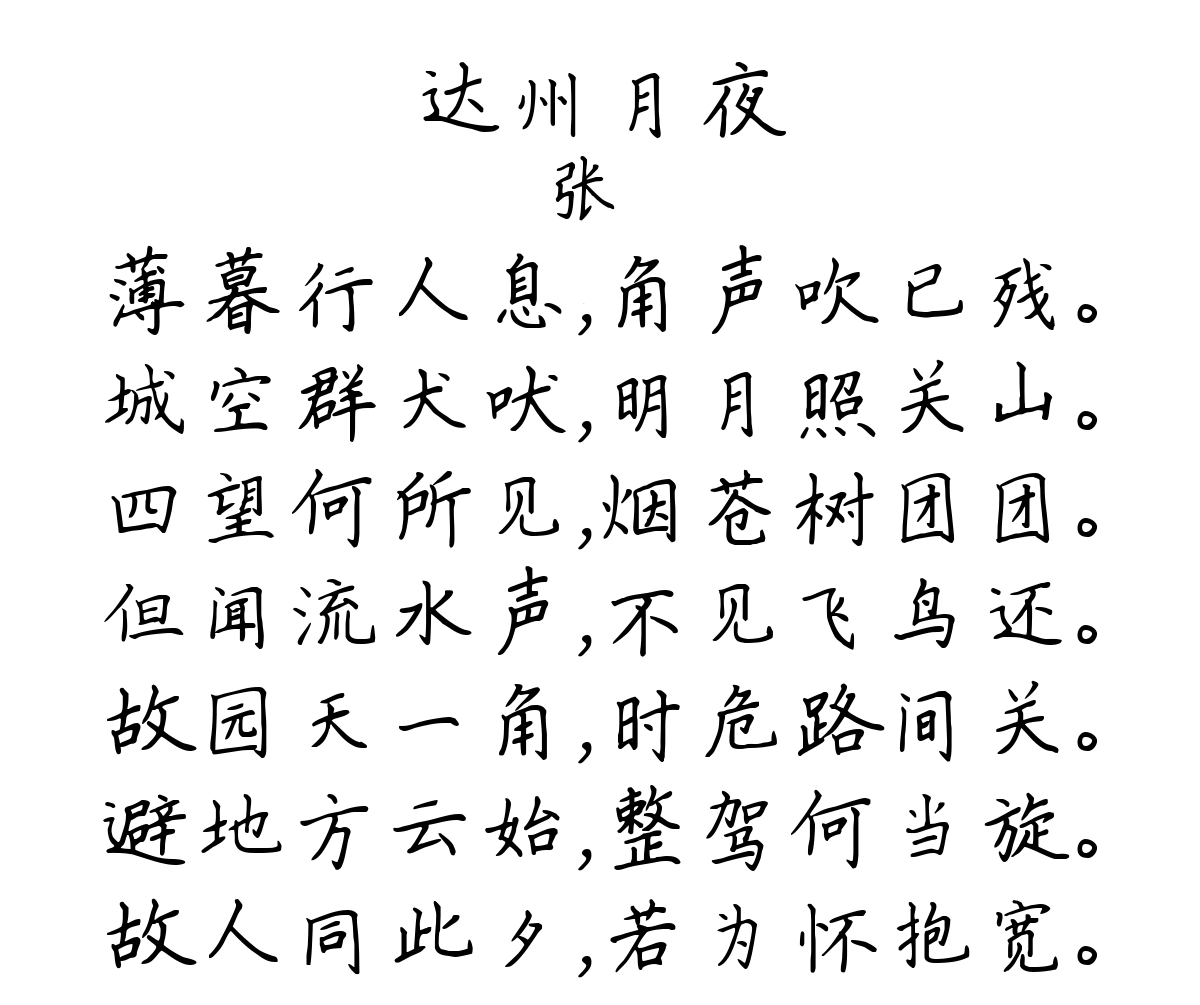 达州月夜
张
薄暮行人息,角声吹已残。
城空群犬吠,明月照关山。
四望何所见,烟苍树团团。
但闻流水声,不见飞鸟还。
故园天一角,时危路间关。
避地方云始,整驾何当旋。
故人同此夕,若为怀抱宽。